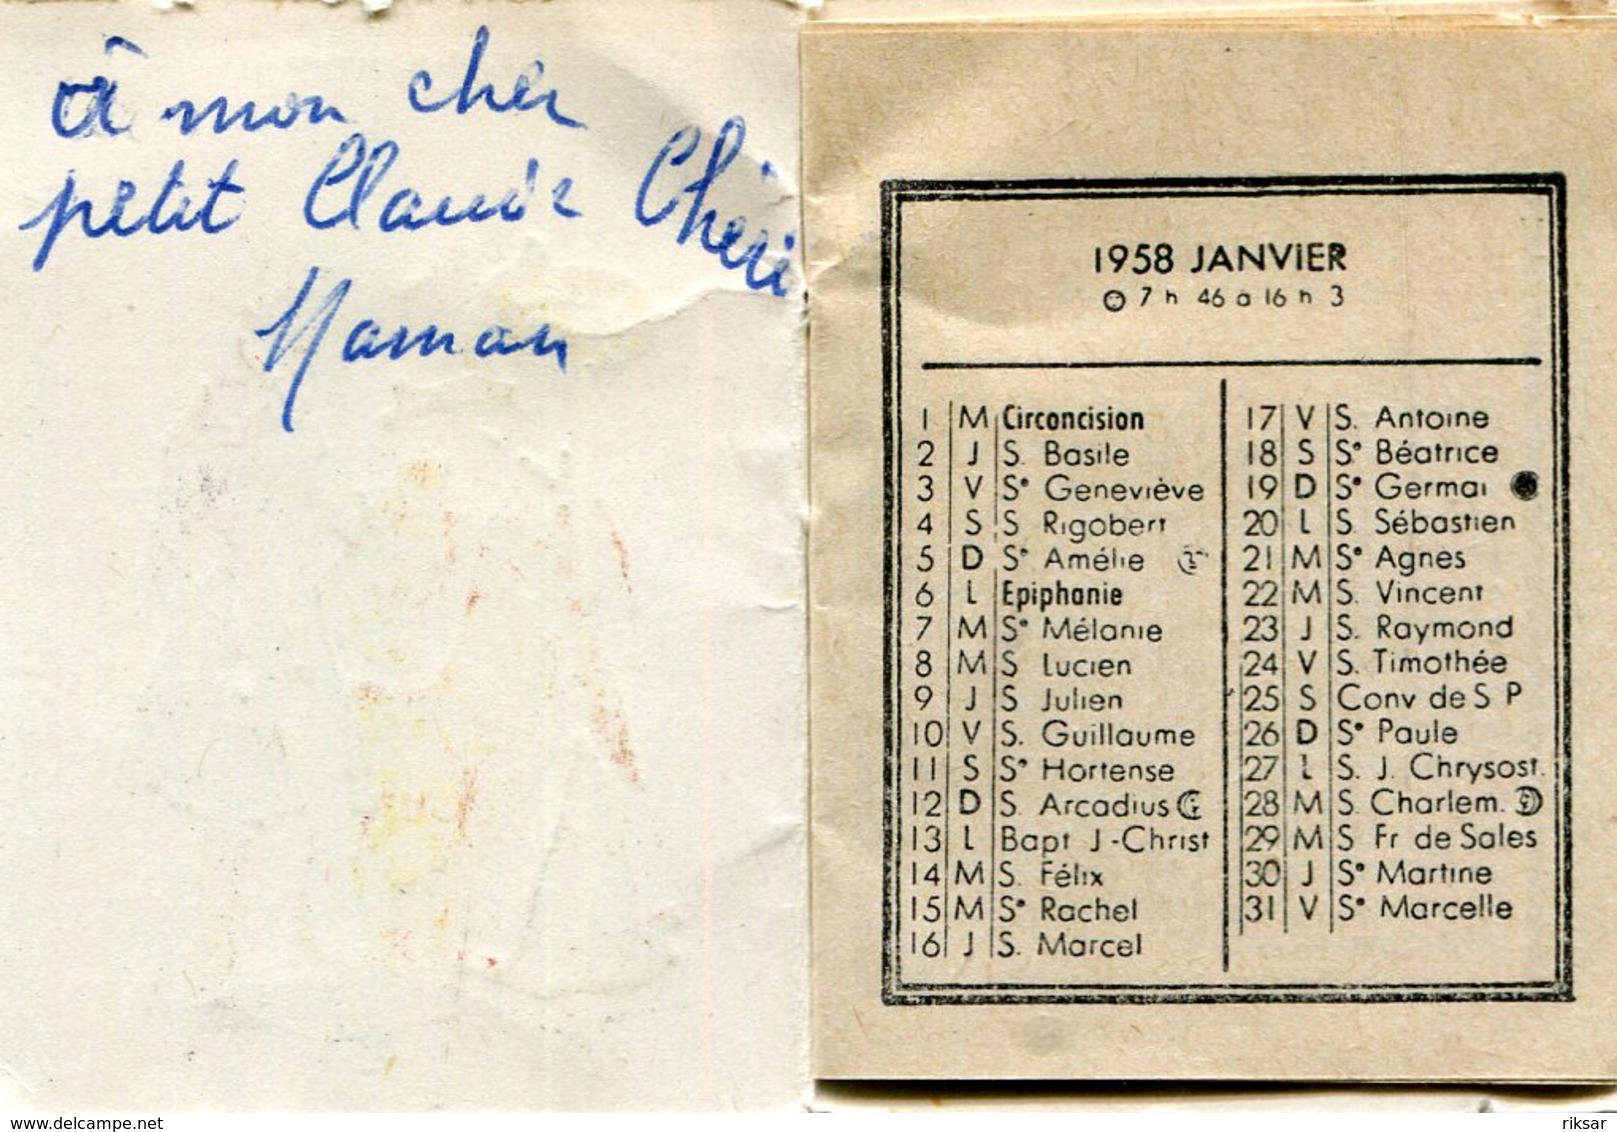 à mon cher
petit Claude Chéri
Maman
1958 JANVIER
7 h 46 à 16 h 3
1 M Circoncision
2 J S. Basile
3 V Sᵉ Geneviève
4 S S Rigobert
5 D Sᵉ Amélie
6 L Epiphanie
7 M Sᵉ Mélanie
8 M S Lucien
9 J S Julien
10 V S. Guillaume
11 S Sᵉ Hortense
12 D S. Arcadius
13 L Bapt J-Christ
14 M S. Félix
15 M Sᵉ Rachel
16 J S. Marcel
17 V S. Antoine
18 S Sᵉ Béatrice
19 D Sᵉ Germai
20 L S. Sébastien
21 M Sᵉ Agnès
22 M S. Vincent
23 J S. Raymond
24 V S. Timothée
25 S Conv de S P
26 D Sᵉ Paule
27 L S. J. Chrysost.
28 M S. Charlem.
29 M S Fr de Sales
30 J Sᵉ Martine
31 V Sᵉ Marcelle
www.delcampe.net
riksar